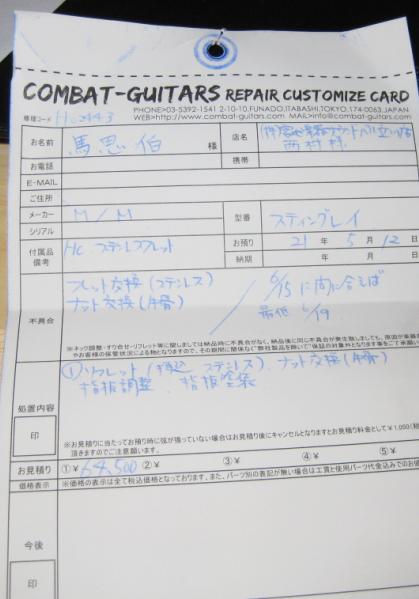 COMBAT-GUITARS REPAIR CUSTOMIZE CARD
PHONE>03-5392-1541 2-10-10,FUNADO,ITABASHI,TOKYO,174-0063,JAPAN
WEB>http://www.combat-guitars.com MAIL>info@combat-guitars.com
修理コード Hc2443
お名前 馬思伯 様 店名
西村様
お電話 携帯
E-MAIL
ご住所
メーカー M/M 型番 スティングレイ
シリアル お預り 21年 5月 12日
付属品 備考 HC ステンレスフレット 納期 年 月 日
フレット交換(ステンレス) 6/15に間に合えば
ナット交換(牛骨) 最低 6/19
不具合
※ネック調整・すり合せ・リフレット等に関しましては納品時に不具合がなく、納品後に同じ不具合が発生致しましても、原因が楽器
やお客様の保管状況による物となりますので、その期間に関係なく"弊社製品を除いて"保証の対象外となります事をご了承
① リフレット(持込 ステンレス)、ナット交換(牛骨)
指板調整、指板塗装
処置内容
印
※お見積りに当たってお預り時に弦が張っていない場合はお見積り後にキャンセルとなりますとお見積り料金として¥1,000(税
頂きますのでご注意願います。
お見積り ①¥64,500 ②¥ ③¥ ④¥ ⑤¥
価格表示 ※価格の表示は全て税込価格となっております、また、パーツ別の表記が無い場合は工賃と使用パーツ代金込みでのお値
今後
印